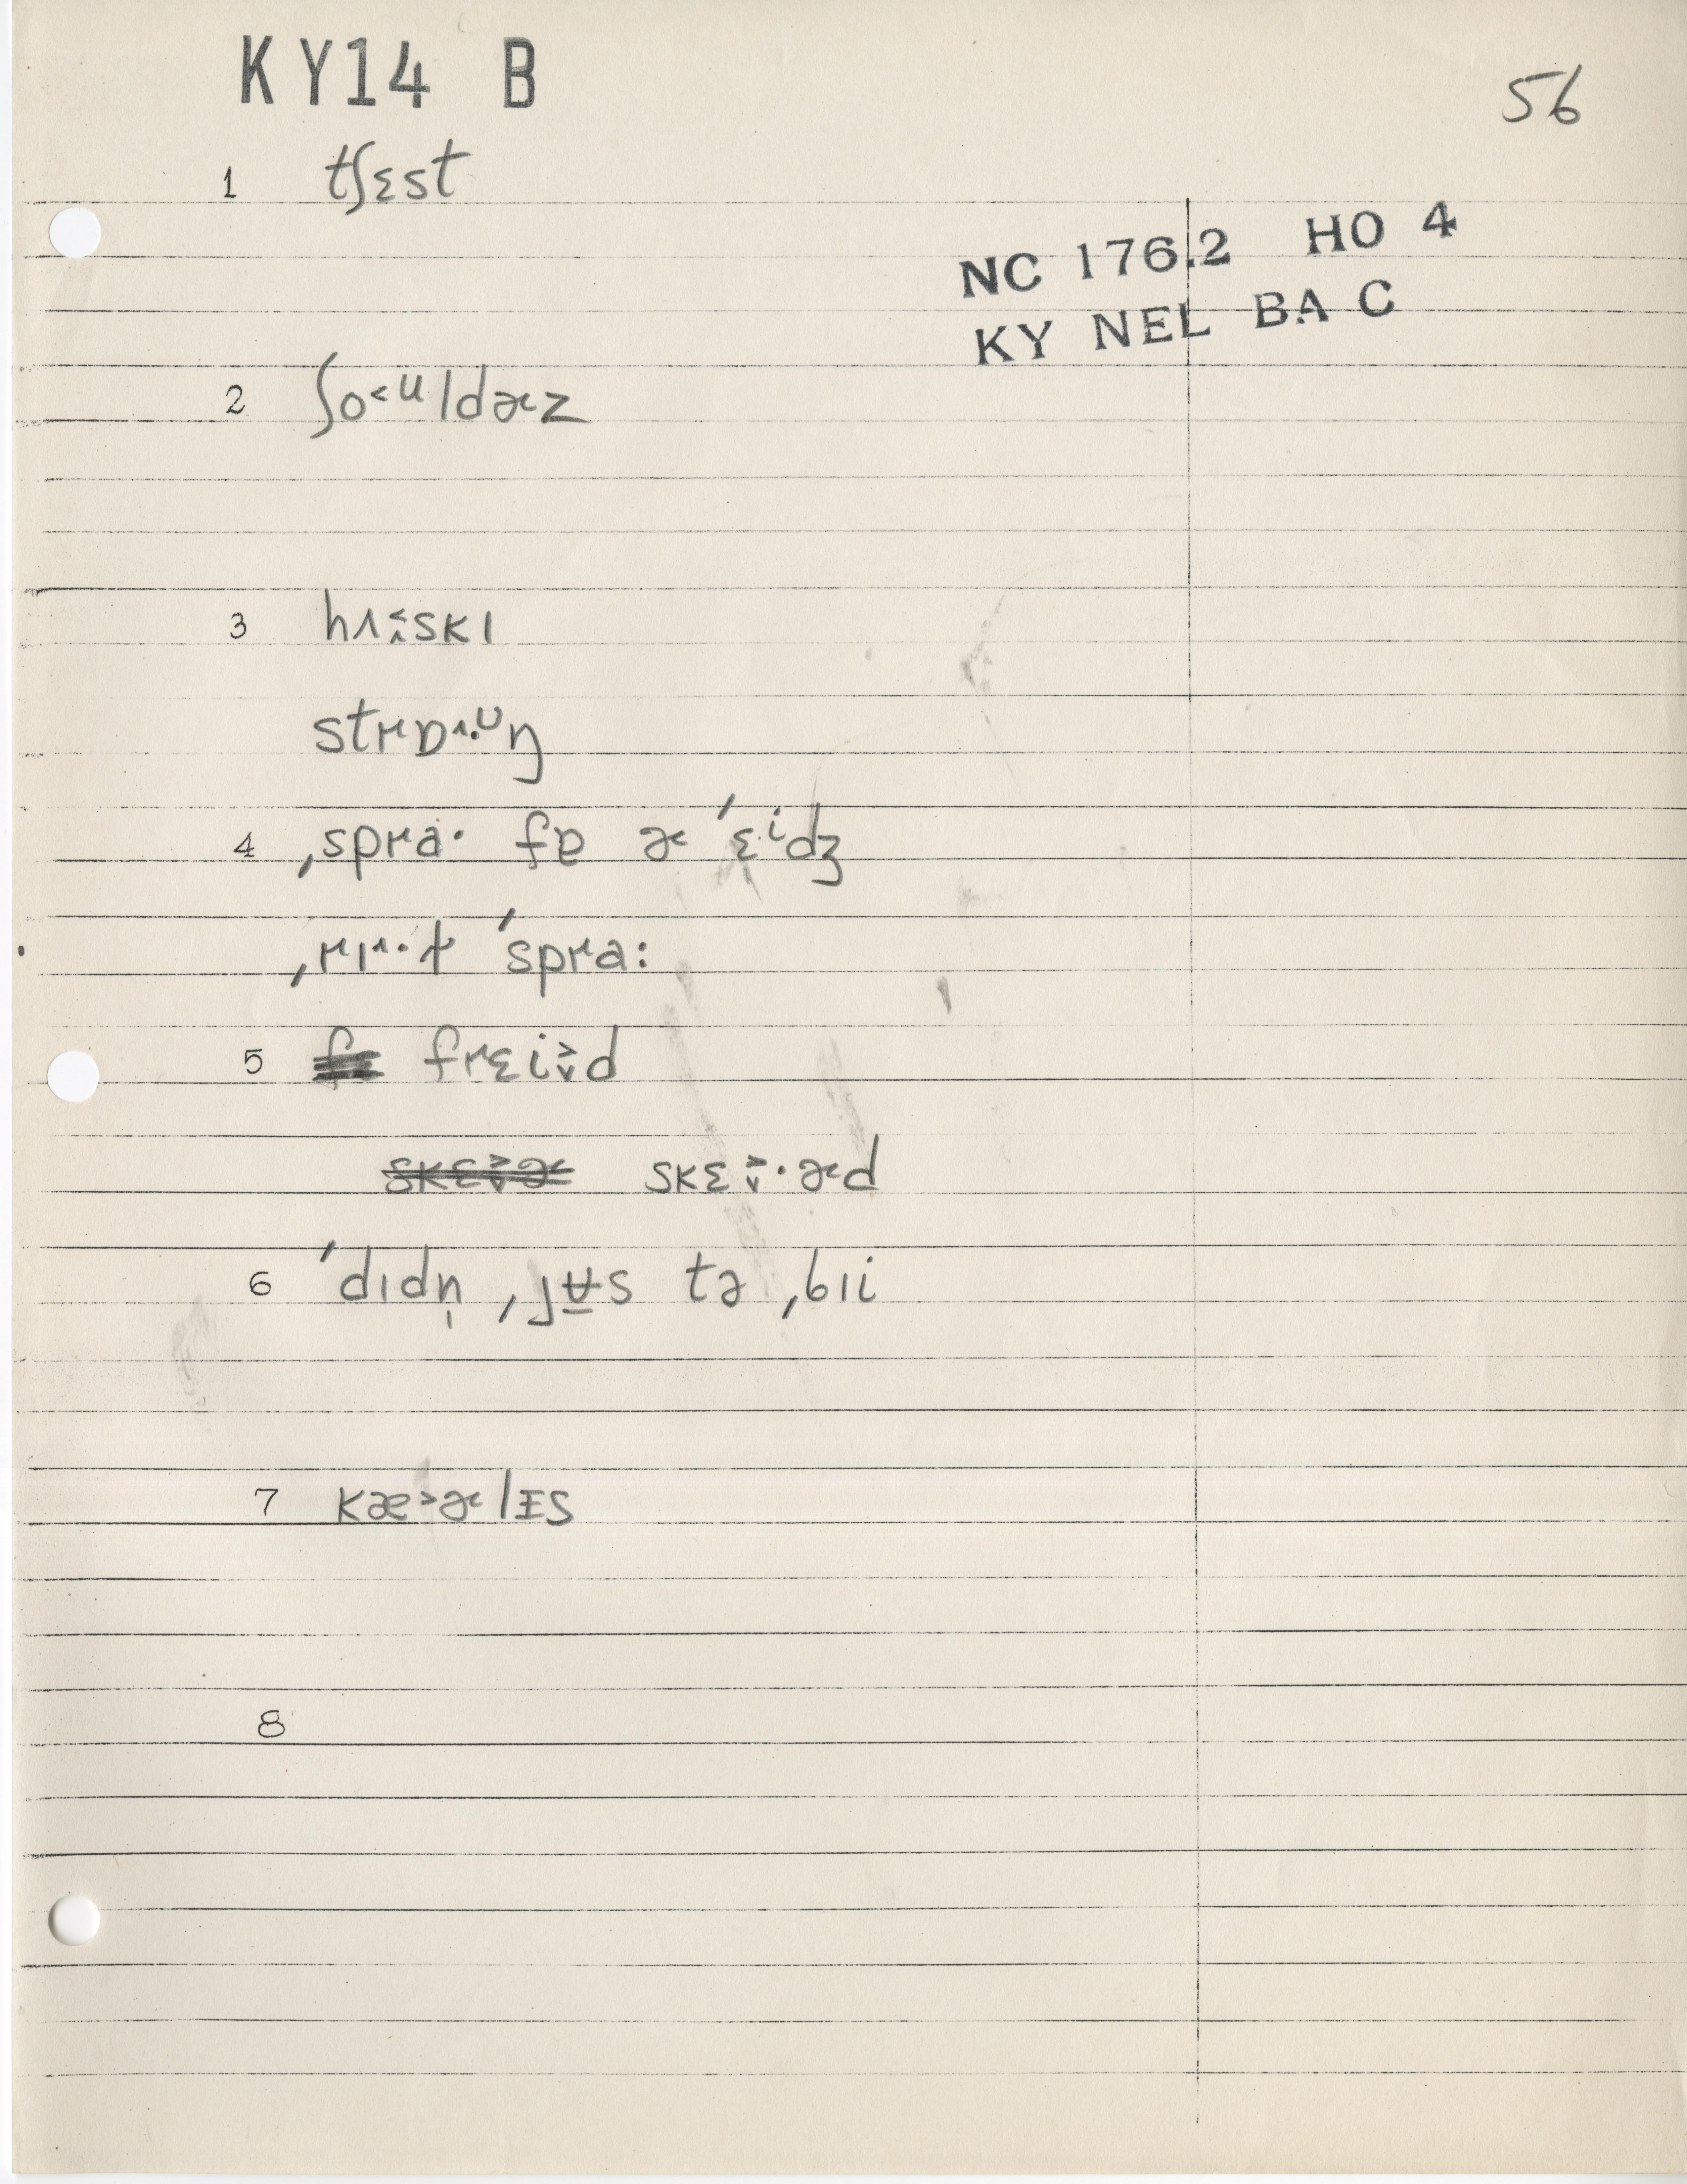 KY14 B
56
1 tʃɛst
NC 176.2 HO 4
KY NEL BA C
2 ʃo˂ᵘldɚz
3 hʌ˂̭skɪ
strɒ˄·ᶷŋ
4 ˌspra· fɐ ɚ ˈɛ̜ⁱdʒ
ˌrɪ˄·ɫ ˈspra:
5 frɛi˃̬d
skɛ˃̬·ɚd
6 ˈdɪdn̩ ˌjʉ̱s tə ˌbɪi
7 kæ˃ɚlᵻs
8